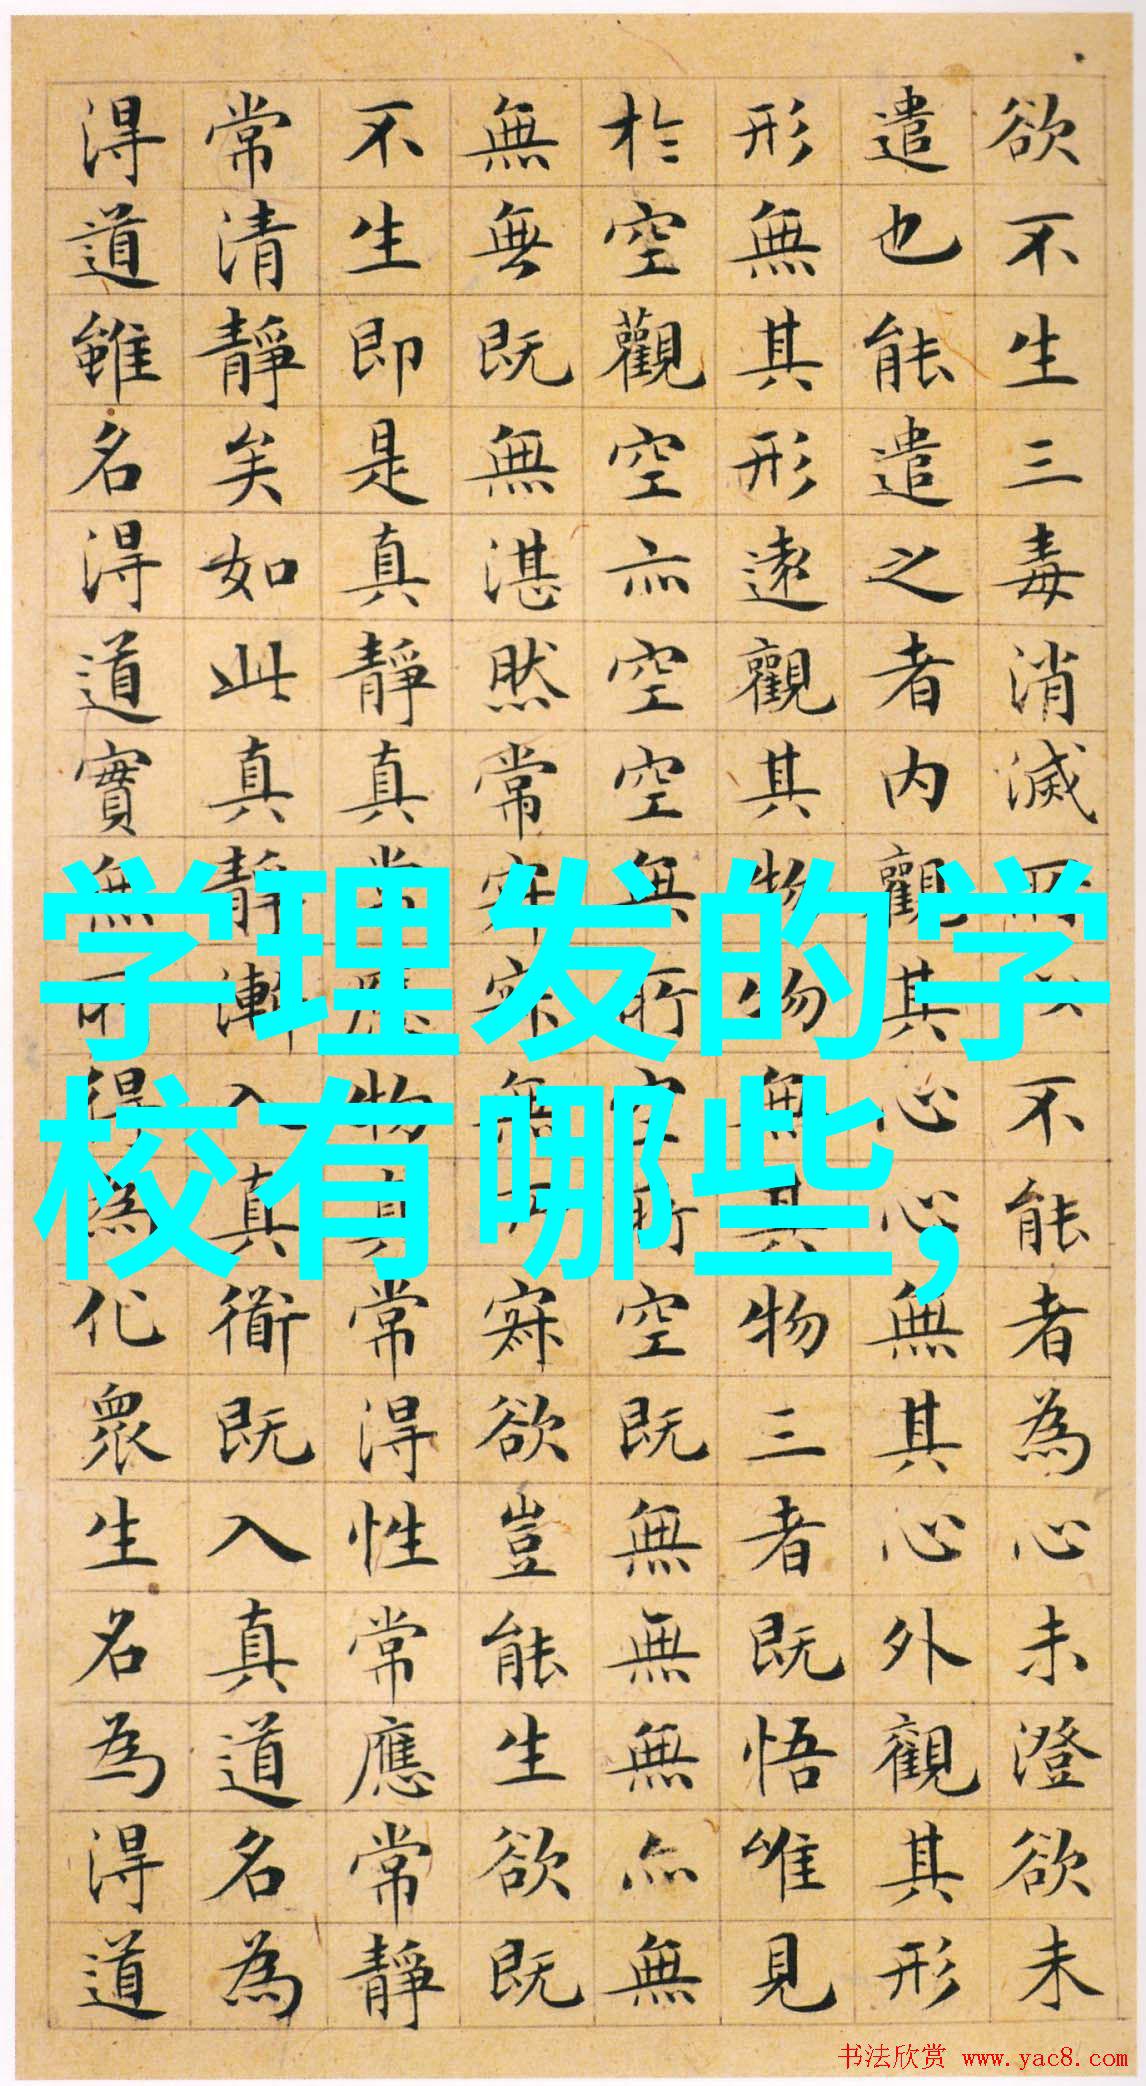 欲不生三毒消滅所以不能者為心未澄欲未
遣也能遣之者内觀其心心無其心外觀其形
形無其形遠觀其物物無其物三者既悟唯見
於空觀空亦空空無所空所空既無無無亦無
無無既無湛然常寂寂無所寂欲豈能生欲既
不生即是真靜真常應物真常得性常應常靜
常清靜矣如此真靜漸入真衜既入真道名為
得道雖名得道實無所得為化眾生名為得道
学理发的学
校有哪些,
书法欣赏 www.yac8.com